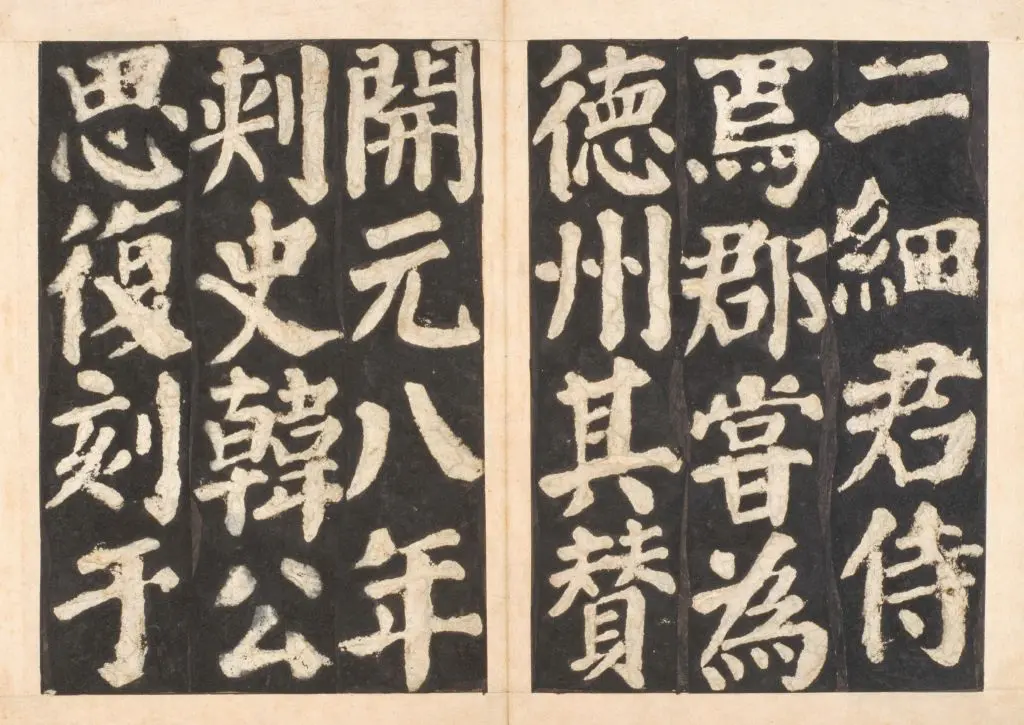 二細君侍
焉郡嘗為
德州其贊
開元八年
刾史韓公
思復刻于